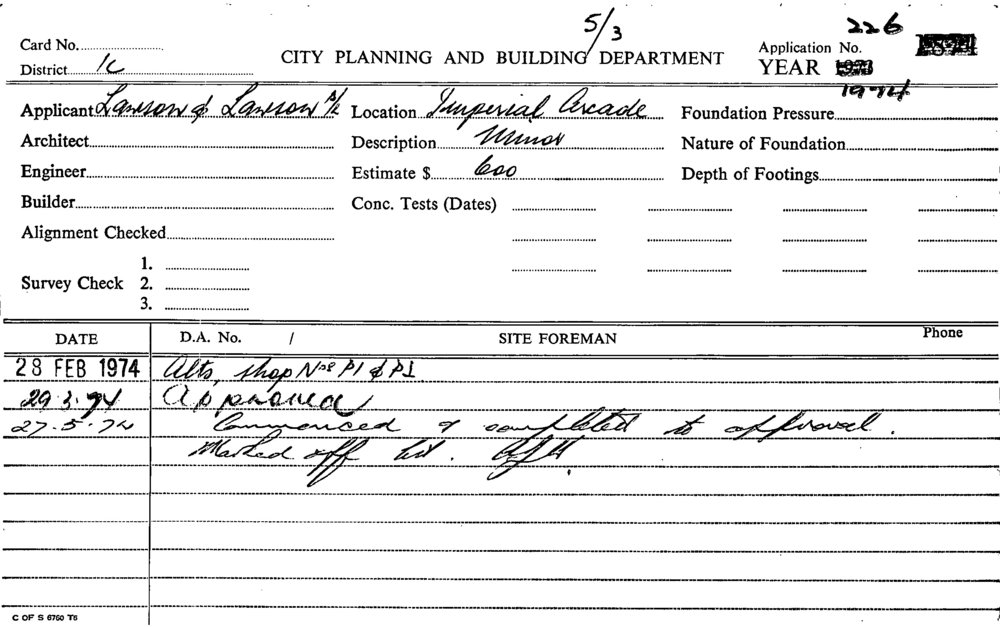 5/3
226
Card No.
CITY PLANNING AND BUILDING DEPARTMENT
Application No.
District 1C
YEAR 1973
1974
Applicant Lawson & Lawson Location Imperial Arcade Foundation Pressure
Architect Description Minor Nature of Foundation
Engineer Estimate $ 600 Depth of Footings
Builder Conc. Tests (Dates)
Alignment Checked
1.
Survey Check 2.
3.
DATE D.A. No. / SITE FOREMAN Phone
28 FEB 1974 Alts, shop Nos P1 &
29.3.74 Approved
27.5.74 Commenced & completed to approval.
Marked off list.
C OF S 6760 T5